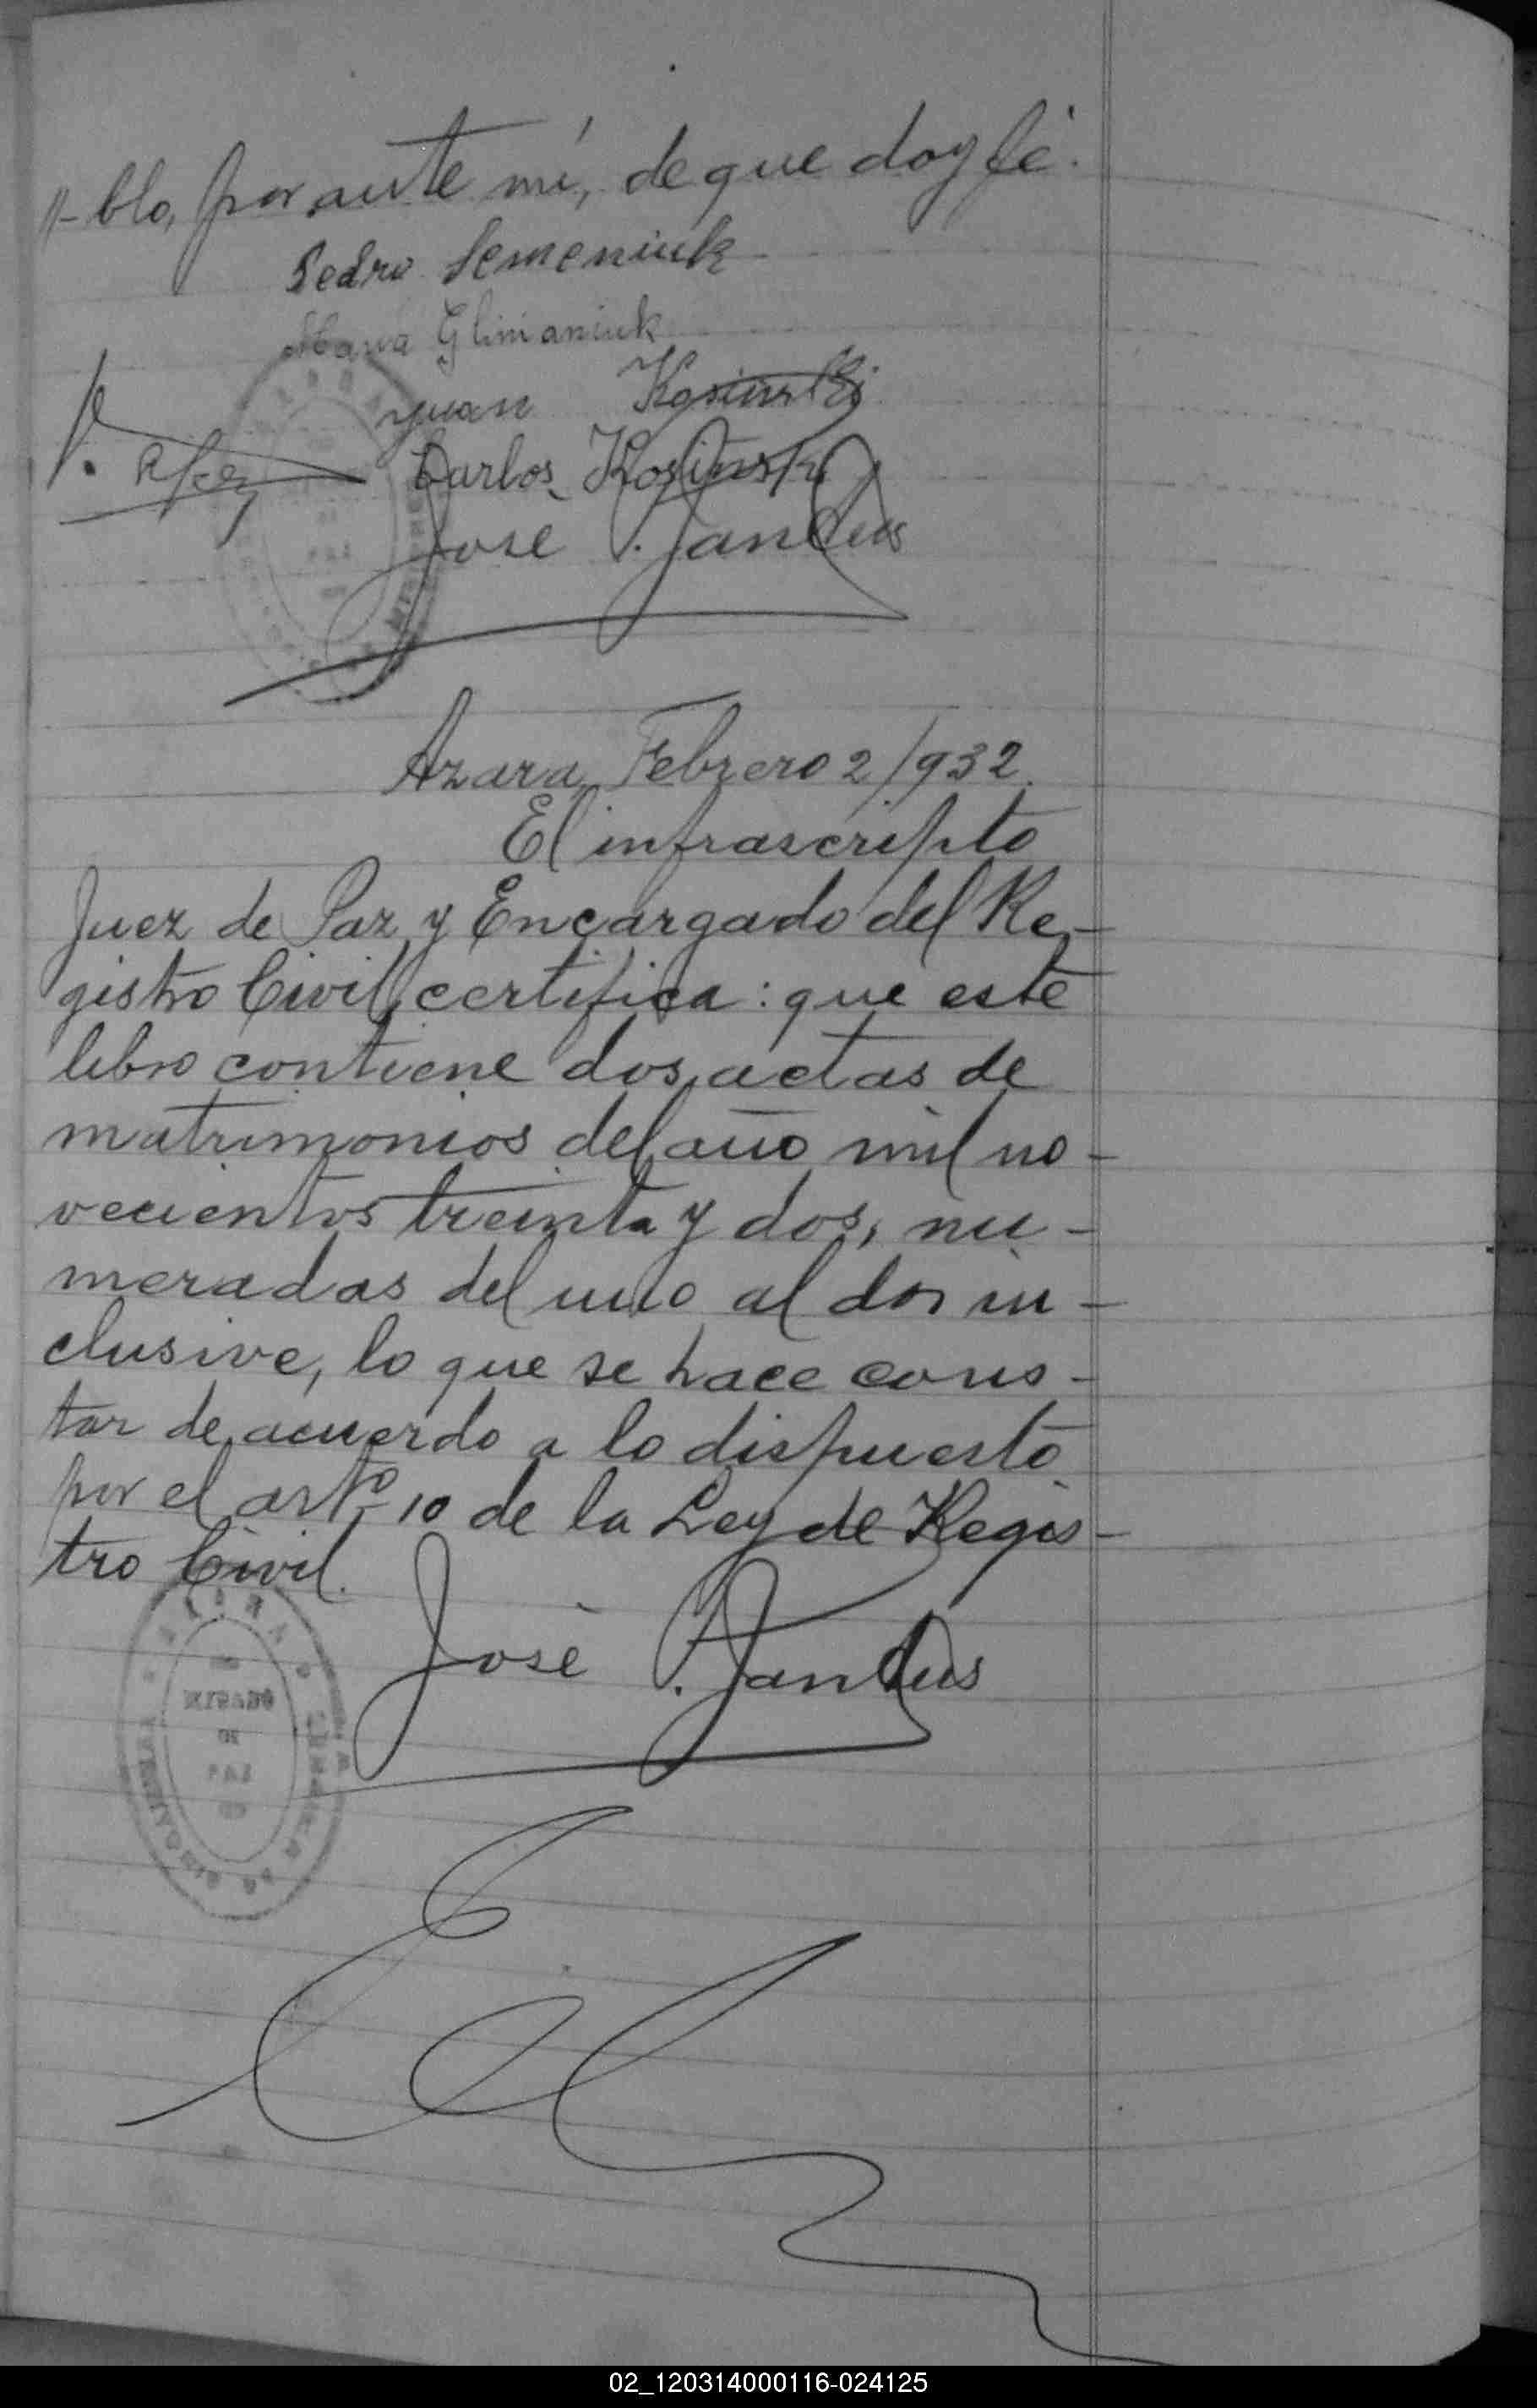 //- blo, por ante mí, de que doy fé.
Pedro Semeniuk
Maria Glinianiuk
Juan Kosinski
Carlos Kosinski
José P. Jandus
Azara, Febrero 2/932.
El infrascripto
Juez de Paz y Encargado del Re-
gistro Civil, certifica: que este
libro contiene dos actas de
matrimonios del año mil no-
vecientos treinta y dos, nu-
meradas del uno al dos in-
clusive, lo que se hace cons-
tar de acuerdo a lo dispuesto
por el artº 10 de la Ley de Regis-
tro Civil.
José P. Jandus
JUZGADO
DE
PAZ
02_120314000116-024125